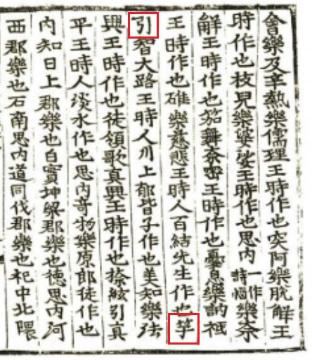 會樂及辛熱樂儒理王時作也突阿樂脫解王
時作也枝兒樂婆娑王時作也思內一作詩惱樂奈
解王時作也笳舞奈密王時作也憂息樂訥祗
王時作也碓樂慈悲王時人百結先生作也竽
引智大路王時人川上郁皆子作也美知樂法
興王時作也徒領歌真興王時作也捺絃引真
平王時人淡水作也思內奇物樂原郎徒作也
內知日上郡樂也白實押梁郡樂也德思內河
西郡樂也石南思內道同伐郡樂也祀中北隈